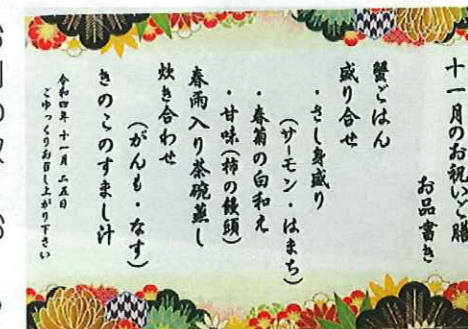 十一月のお祝いご膳
お品書き
蟹ごはん
盛り合せ
・さし身盛り
(サーモン・はまち)
・春菊の白和え
・甘味(柿の饅頭)
春雨入り茶碗蒸し
炊き合わせ
(がんも・なす)
きのこのすまし汁
令和四年十一月二五日
ごゆっくりお召し上がり下さい